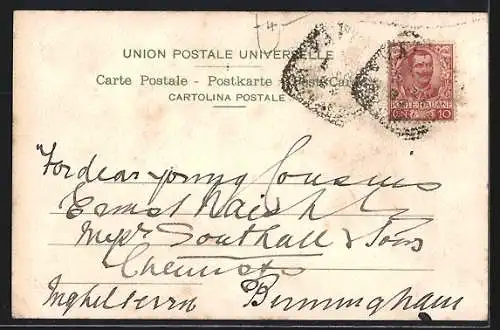 4
UNION POSTALE UNIVERSELLE
Carte Postale - Postkarte - Post Card
CARTOLINA POSTALE
POSTE ITALIANE
CENT. 10
"For dear young Cousins
Ernest Naish
Messrs Southall & Sons
Chemists
Inghilterra Birmingham